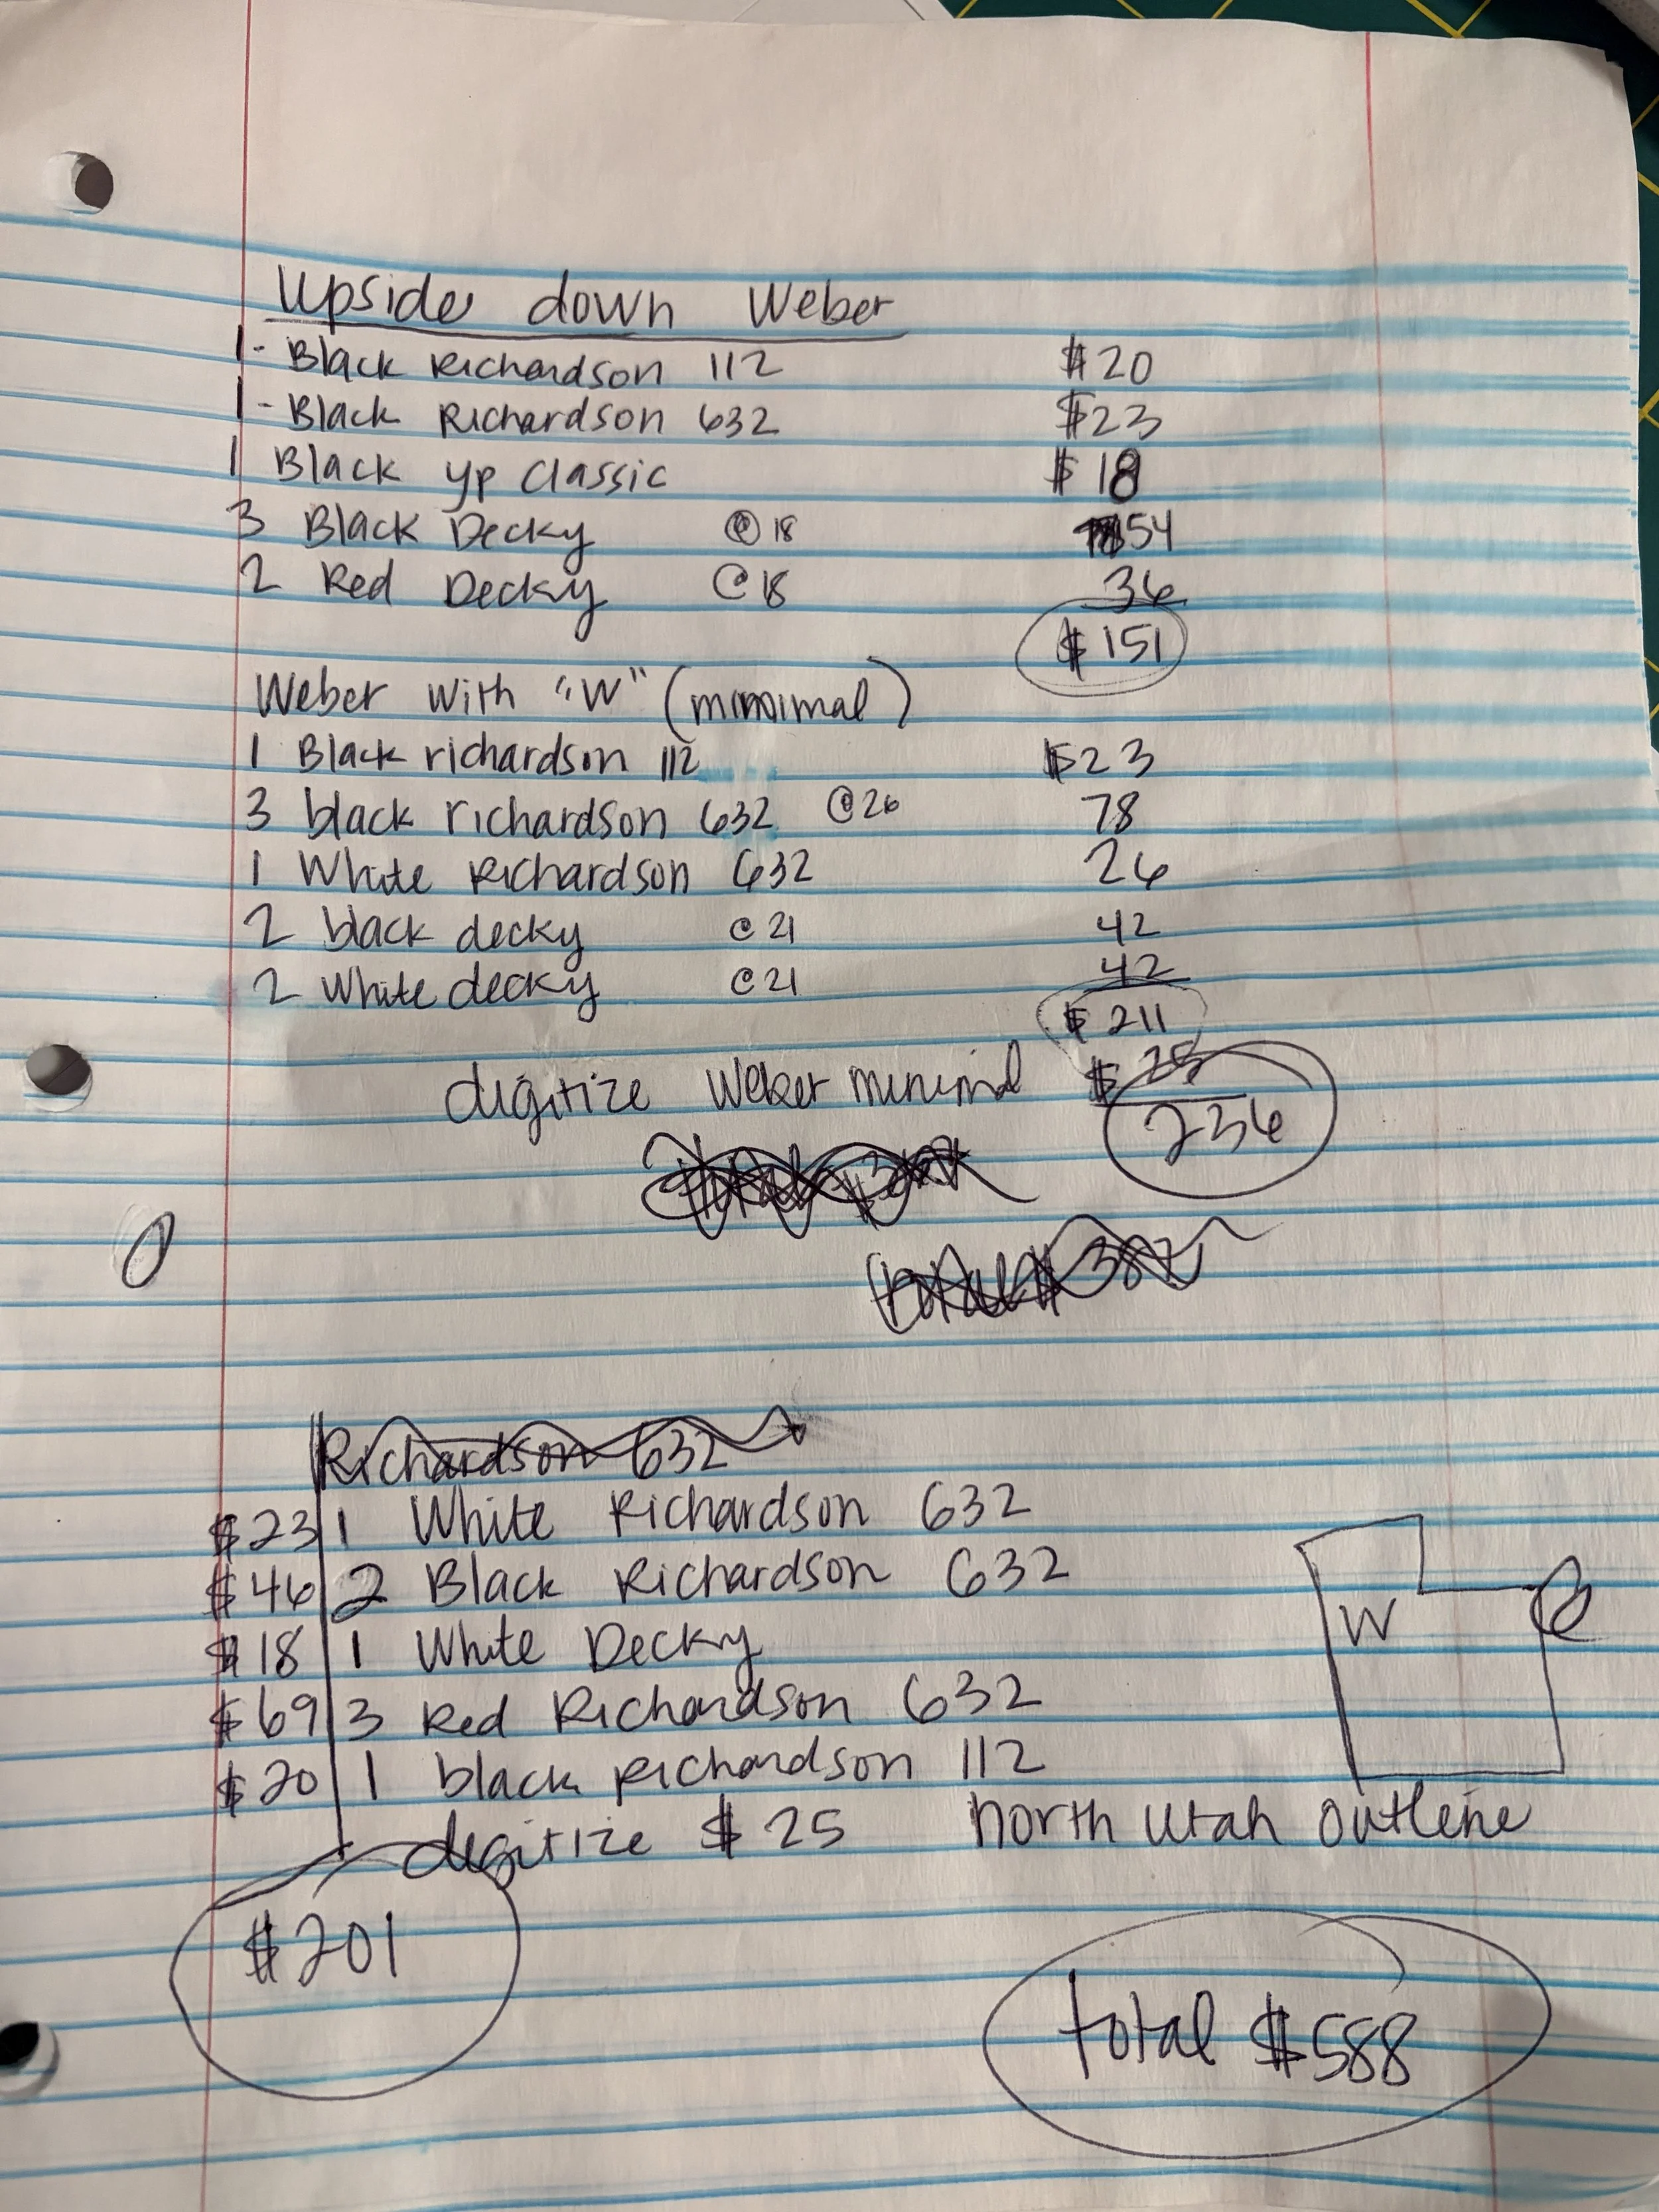 Upside down Weber
1 - Black Richardson 112 $20
1 - Black Richardson 632 $23
1 Black yp Classic $18
3 Black Decky @18 54
2 Red Decky @18 36
$151
Weber with "W" (minimal)
1 Black richardson 112 $23
3 black richardson 632 @26 78
1 White Richardson 632 26
2 black decky @21 42
2 White decky @21 42
$211
digitize Weber minimal $25
236
total $387
Richardson 632
$23 1 White Richardson 632
$46 2 Black Richardson 632
$18 1 White Decky
$69 3 Red Richardson 632
$20 1 black Richardson 112
W
digitize $25 north Utah outline
$201
total $588